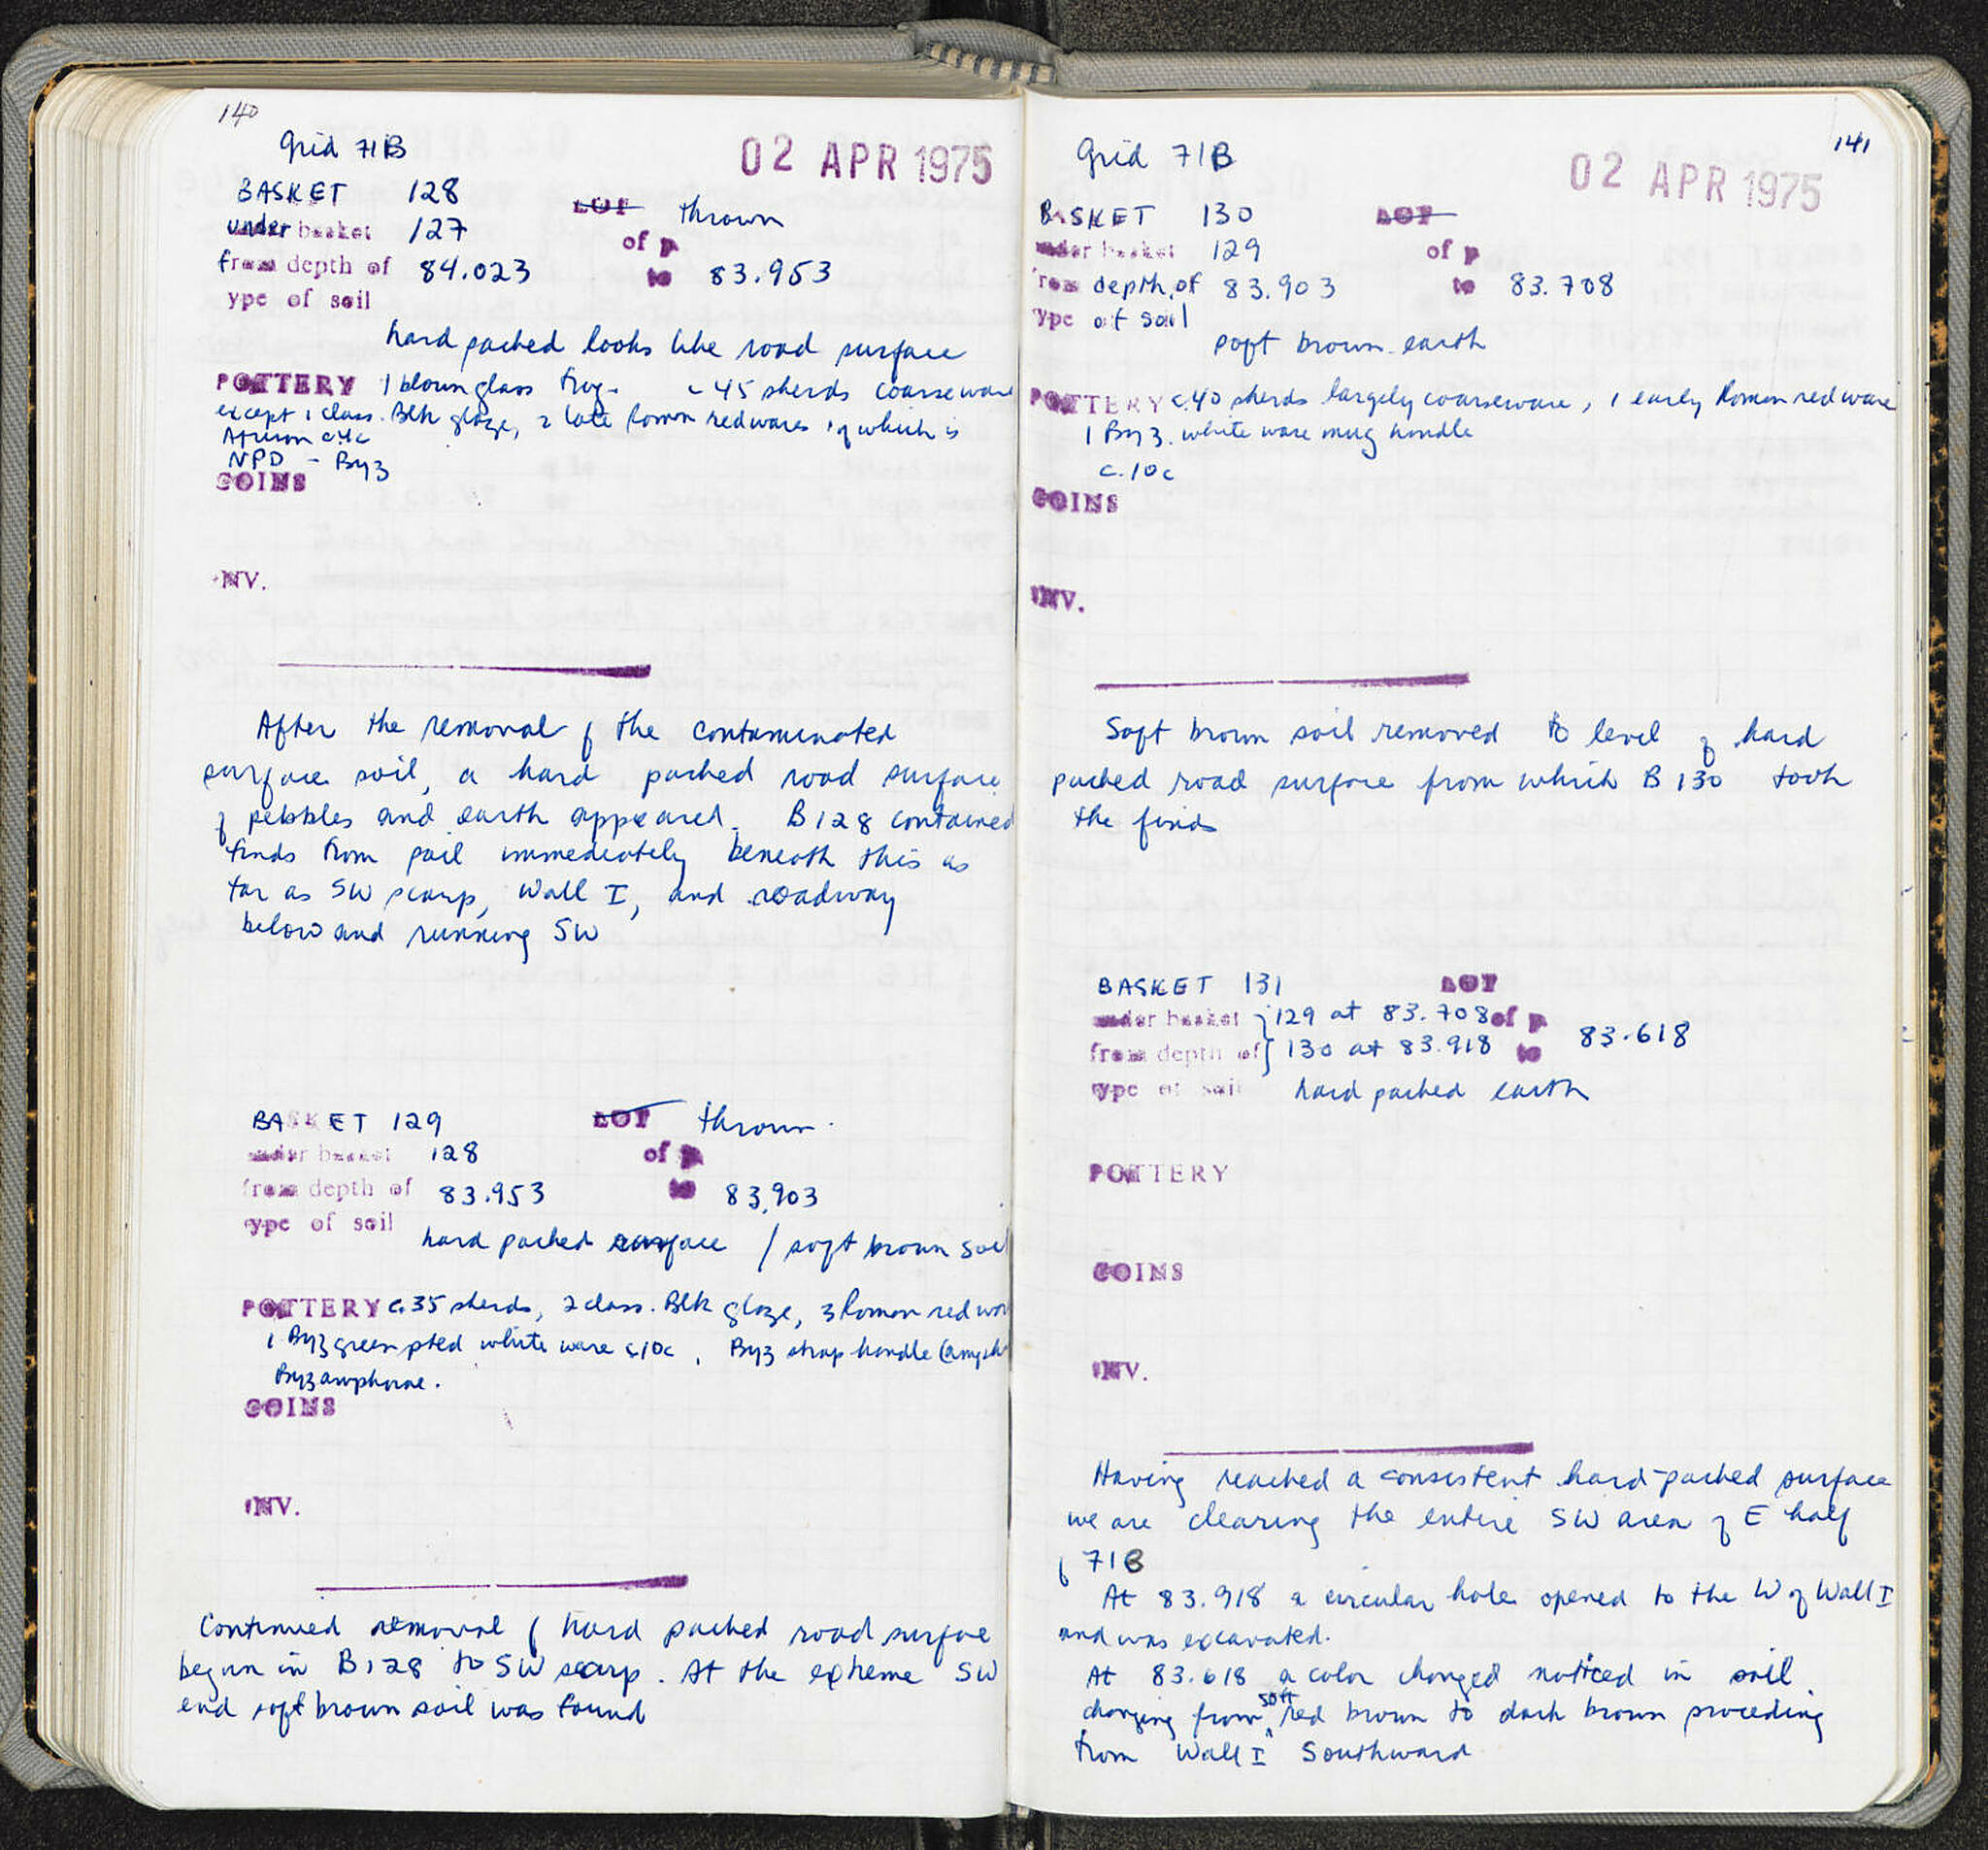 140
Grid 71B
02 APR 1975
BASKET 128
LOT thrown
under basket 127
of p
from depth of 84.023 to 83.953
ype of soil
hard packed looks like road surface
POTTERY 1 blown glass frag. c 45 sherds coarseware
except 1 class. Blk glaze, 2 late Roman redwares 1 of which is
African
NPD - Byz
COINS
INV.
After the removal of the contaminated
surface soil, a hard packed road surface
of pebbles and earth appeared. B128 contained
finds from soil immediately beneath this as
far as SW scarp, Wall I, and roadway
below and running SW
BASKET 129
LOT thrown.
under basket 128
of p
from depth of 83.953 to 83.903
type of soil
hard packed surface / soft brown soil
POTTERY c.35 sherds, 2 class. Blk glaze, 3 Roman red
1 Byz green pted white ware c10c, Byz strap handle
Byz amphorae.
COINS
INV.
Continued removal of hard packed road surface
begun in B128 to SW scarp. At the extreme SW
end soft brown soil was found
141
Grid 71B
02 APR 1975
BASKET 130
LOT
under basket 129
of p
from depth of 83.903 to 83.708
type of soil
soft brown earth
POTTERY c.40 sherds largely coarseware, 1 early Roman redware
1 Byz. white ware mug handle
c.10c
COINS
INV.
Soft brown soil removed to level of hard
packed road surface from which B 130 took
the finds
BASKET 131
LOT
under basket } 129 at 83.708 of p
from depth of } 130 at 83.918 to 83.618
type of soil hard packed earth
POTTERY
COINS
INV.
Having reached a consistent hard-packed surface
we are clearing the entire SW area of E half
of 71B
At 83.918 a circular hole opened to the W of Wall I
and was excavated.
At 83.618 a color changed noticed in soil
changing from soft red brown to dark brown proceding
from Wall I Southward